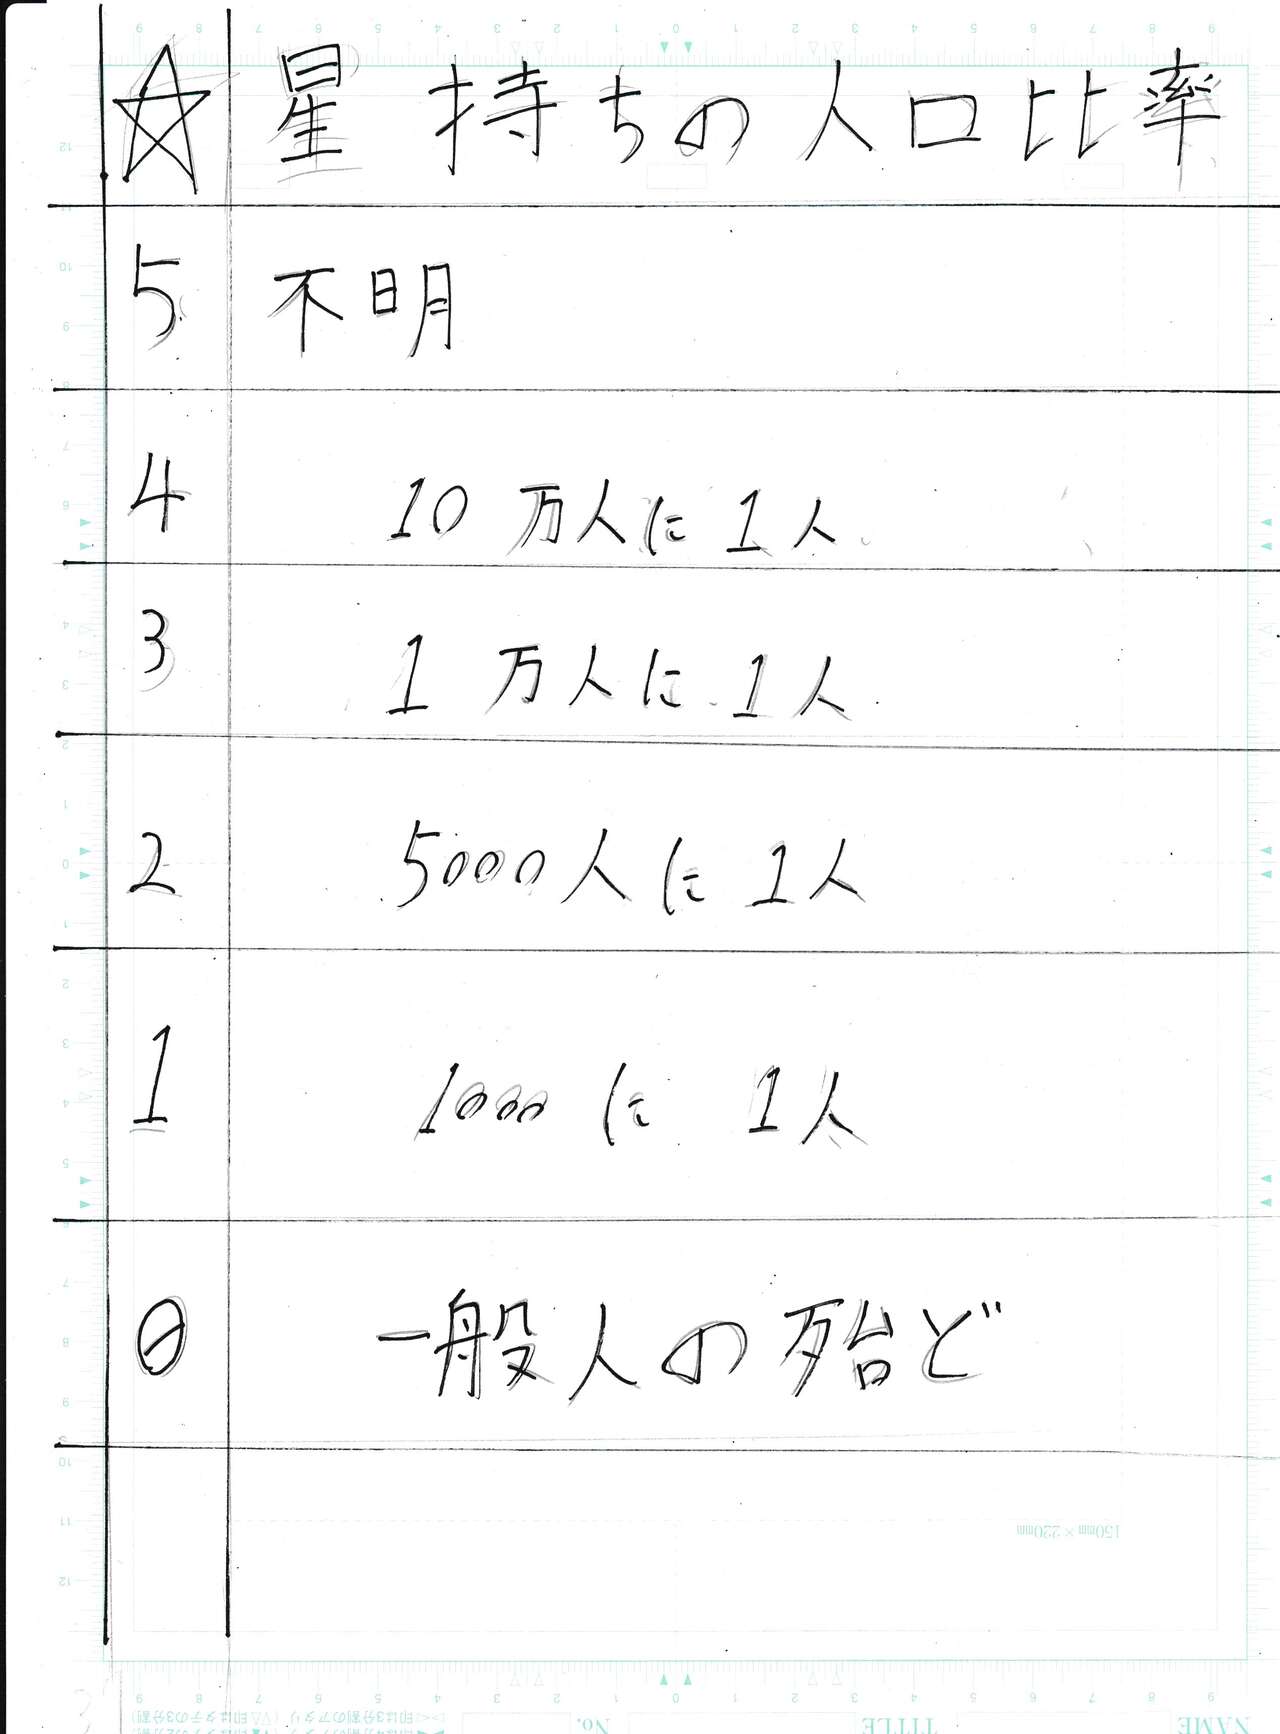 ☆ 星持ちの人口比率
5 不明
4 10万人に1人
3 1万人に1人
2 5000人に1人
1 1000に1人
0 一般人の殆ど
150mm × 220mm
No. TITLE NAME